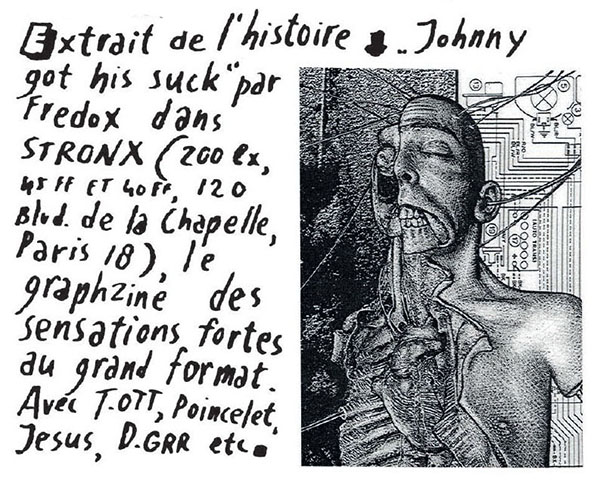 Extrait de l'histoire ⬇.. Johnny
got his suck" par
Fredox dans
STRONX (200 ex,
45 FF ET 40 FF, 120
Blvd. de la Chapelle,
Paris 18), le
graphzine des
sensations fortes
au grand format.
Avec T.OTT, Poincelet,
Jesus, D.GRR etc.